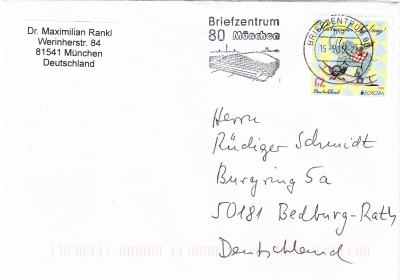 Dr. Maximilian Rankl
Werinherstr. 84
81541 München
Deutschland
Briefzentrum
80 München
BRIEFZENTRUM 80
Deutschland
EUROPA
Herrn
Rüdiger Schmidt
Burgring 5a
50181 Bedburg-Rath
Deutschland